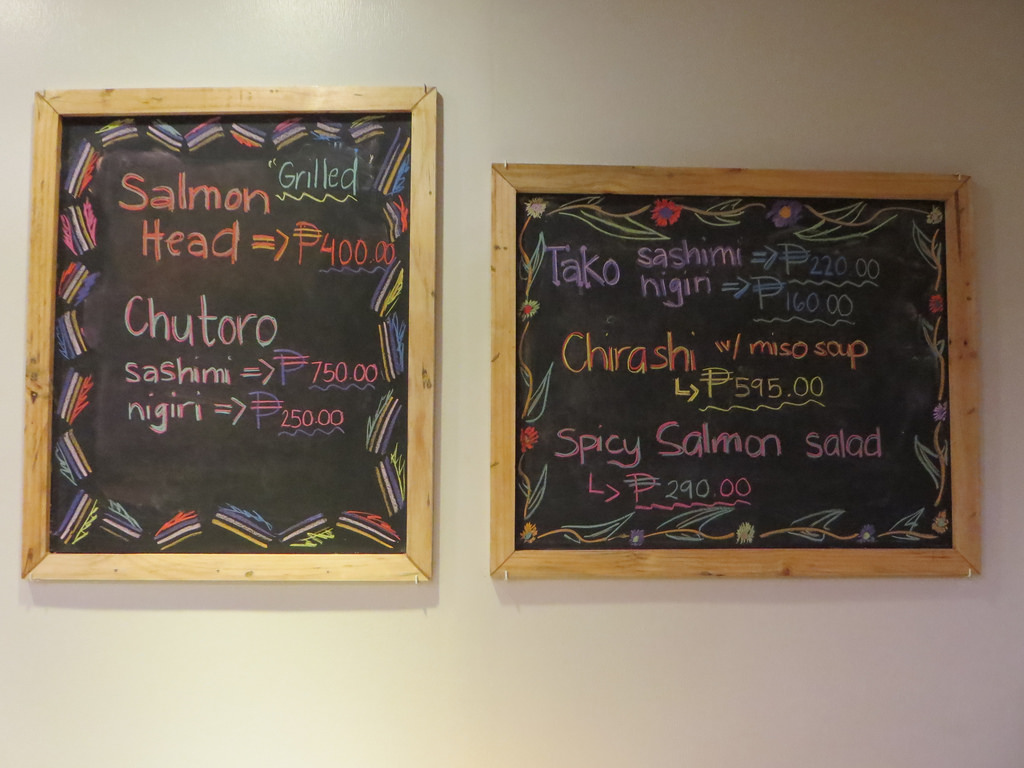 "Grilled"
Salmon
Head => ₱400.00
Chutoro
sashimi => ₱750.00
nigiri => ₱250.00
Tako sashimi => ₱220.00
nigiri => ₱160.00
Chirashi w/ miso soup
↳ ₱595.00
Spicy Salmon salad
↳ ₱290.00